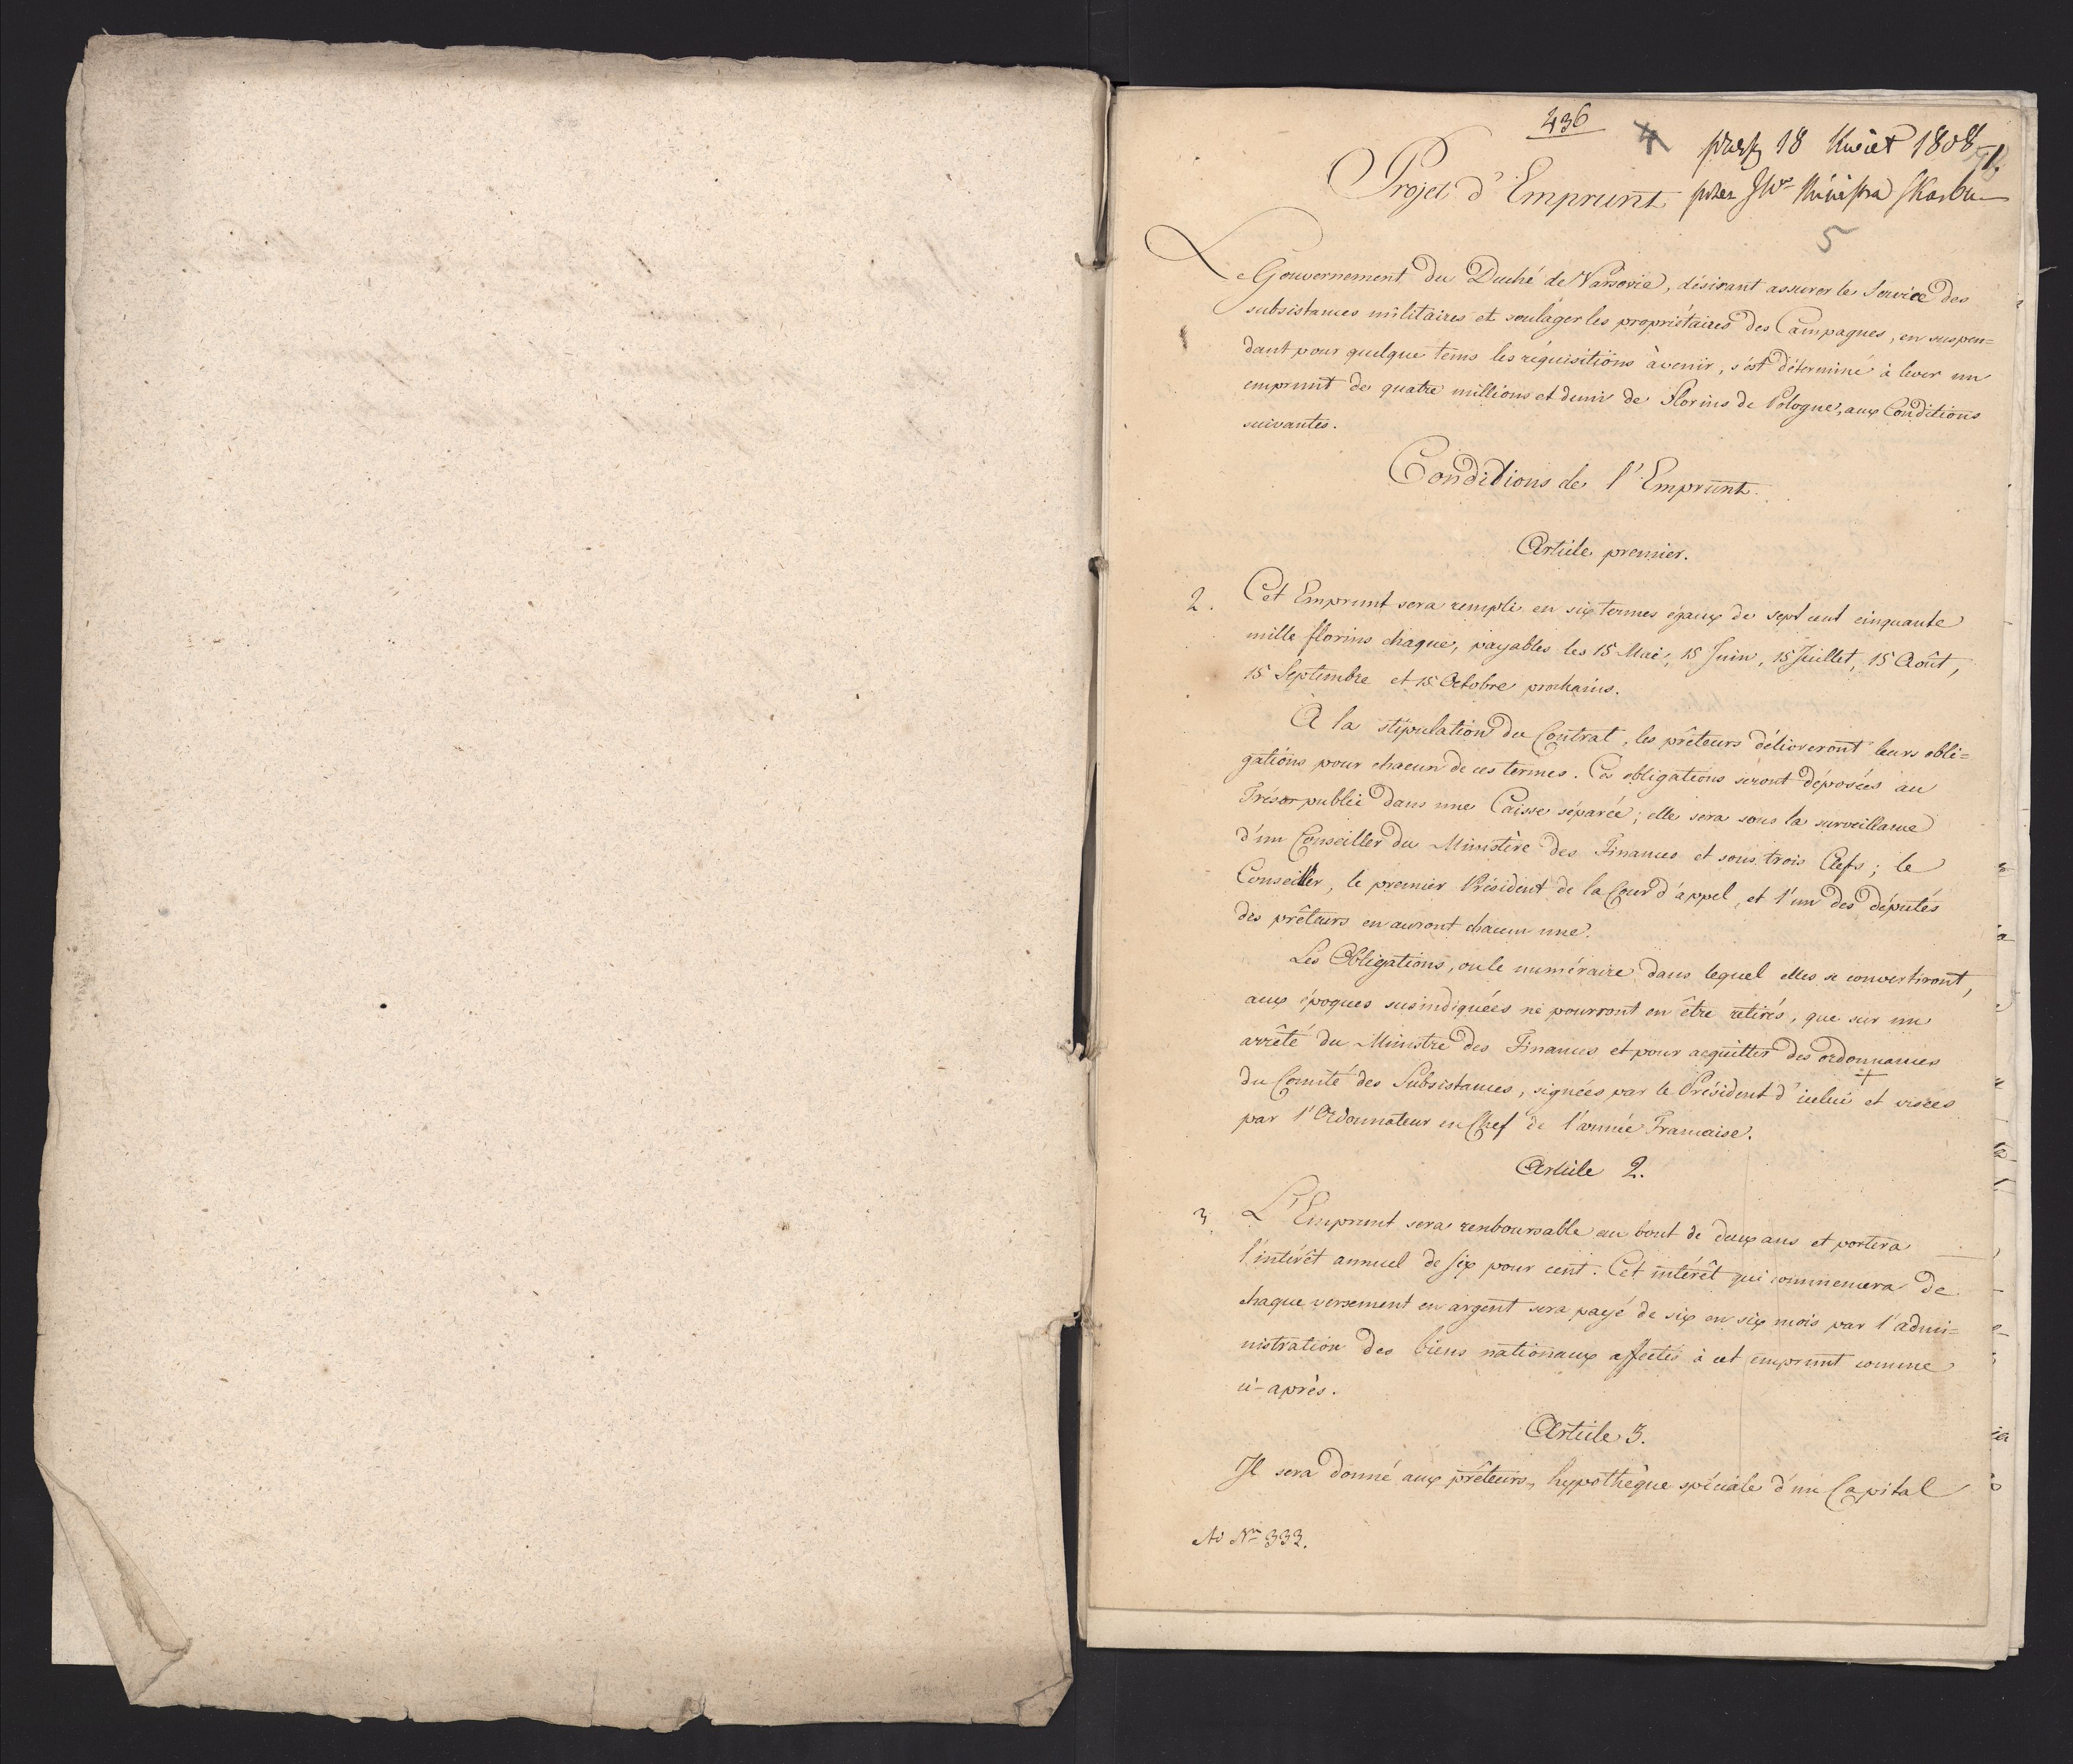 436
4
18 Kwiet 1808
Projet d'Emprunt
przez JW Ministra Skarbu
5
Le Gouvernement du Duché de Varsovie, désirant assurer le Service des
subsistances militaires et soulager les propriétaires des Campagnes, en suspen=
dant pour quelque tems les réquisitions à venir, s'est déterminé à lever un
emprunt de quatre millions et demi de Florins de Pologne, aux Conditions
suivantes.
Conditions de l'Emprunt.
Article premier.
2. Cet Emprunt sera rempli en six termes égaux de sept cent cinquante
mille florins chaque, payables les 15 Mai, 15 Juin, 15 Juillet, 15 Août,
15 Septembre et 15 Octobre prochains.
A la stipulation du Contrat, les prêteurs délivreront leurs obli=
gations pour chacun de ces termes. Ces obligations seront déposées au
Trésor public dans une Caisse séparée; elle sera sous la surveillance
d'un Conseiller du Ministère des Finances et sous trois Clefs; le
Conseiller, le premier Président de la Cour d'appel, et l'un des députés
des prêteurs en auront chacun une.
Les Obligations, ou le numéraire dans lequel elles se convertiront,
aux époques susindiquées ne pourront en être retirés, que sur un
arrêté du Ministre des Finances et pour acquitter des ordonnances
du Comité des Subsistances, signées par le Président d'icelui + et visées
par l'Ordonnateur en Chef de l'armée Francaise.
Article 2.
3 L'Emprunt sera renboursable au bout de deux ans et portera
l'intérêt annuel de six pour cent. Cet intérêt qui commencera de
chaque versement en argent sera payé de six en six mois par l'admi=
nistration des biens nationaux affectés à cet emprunt comme
ci-après.
Article 3.
Il sera donné aux prêteurs, hypothèque spéciale d'un Capital
Ad Nrm 333.